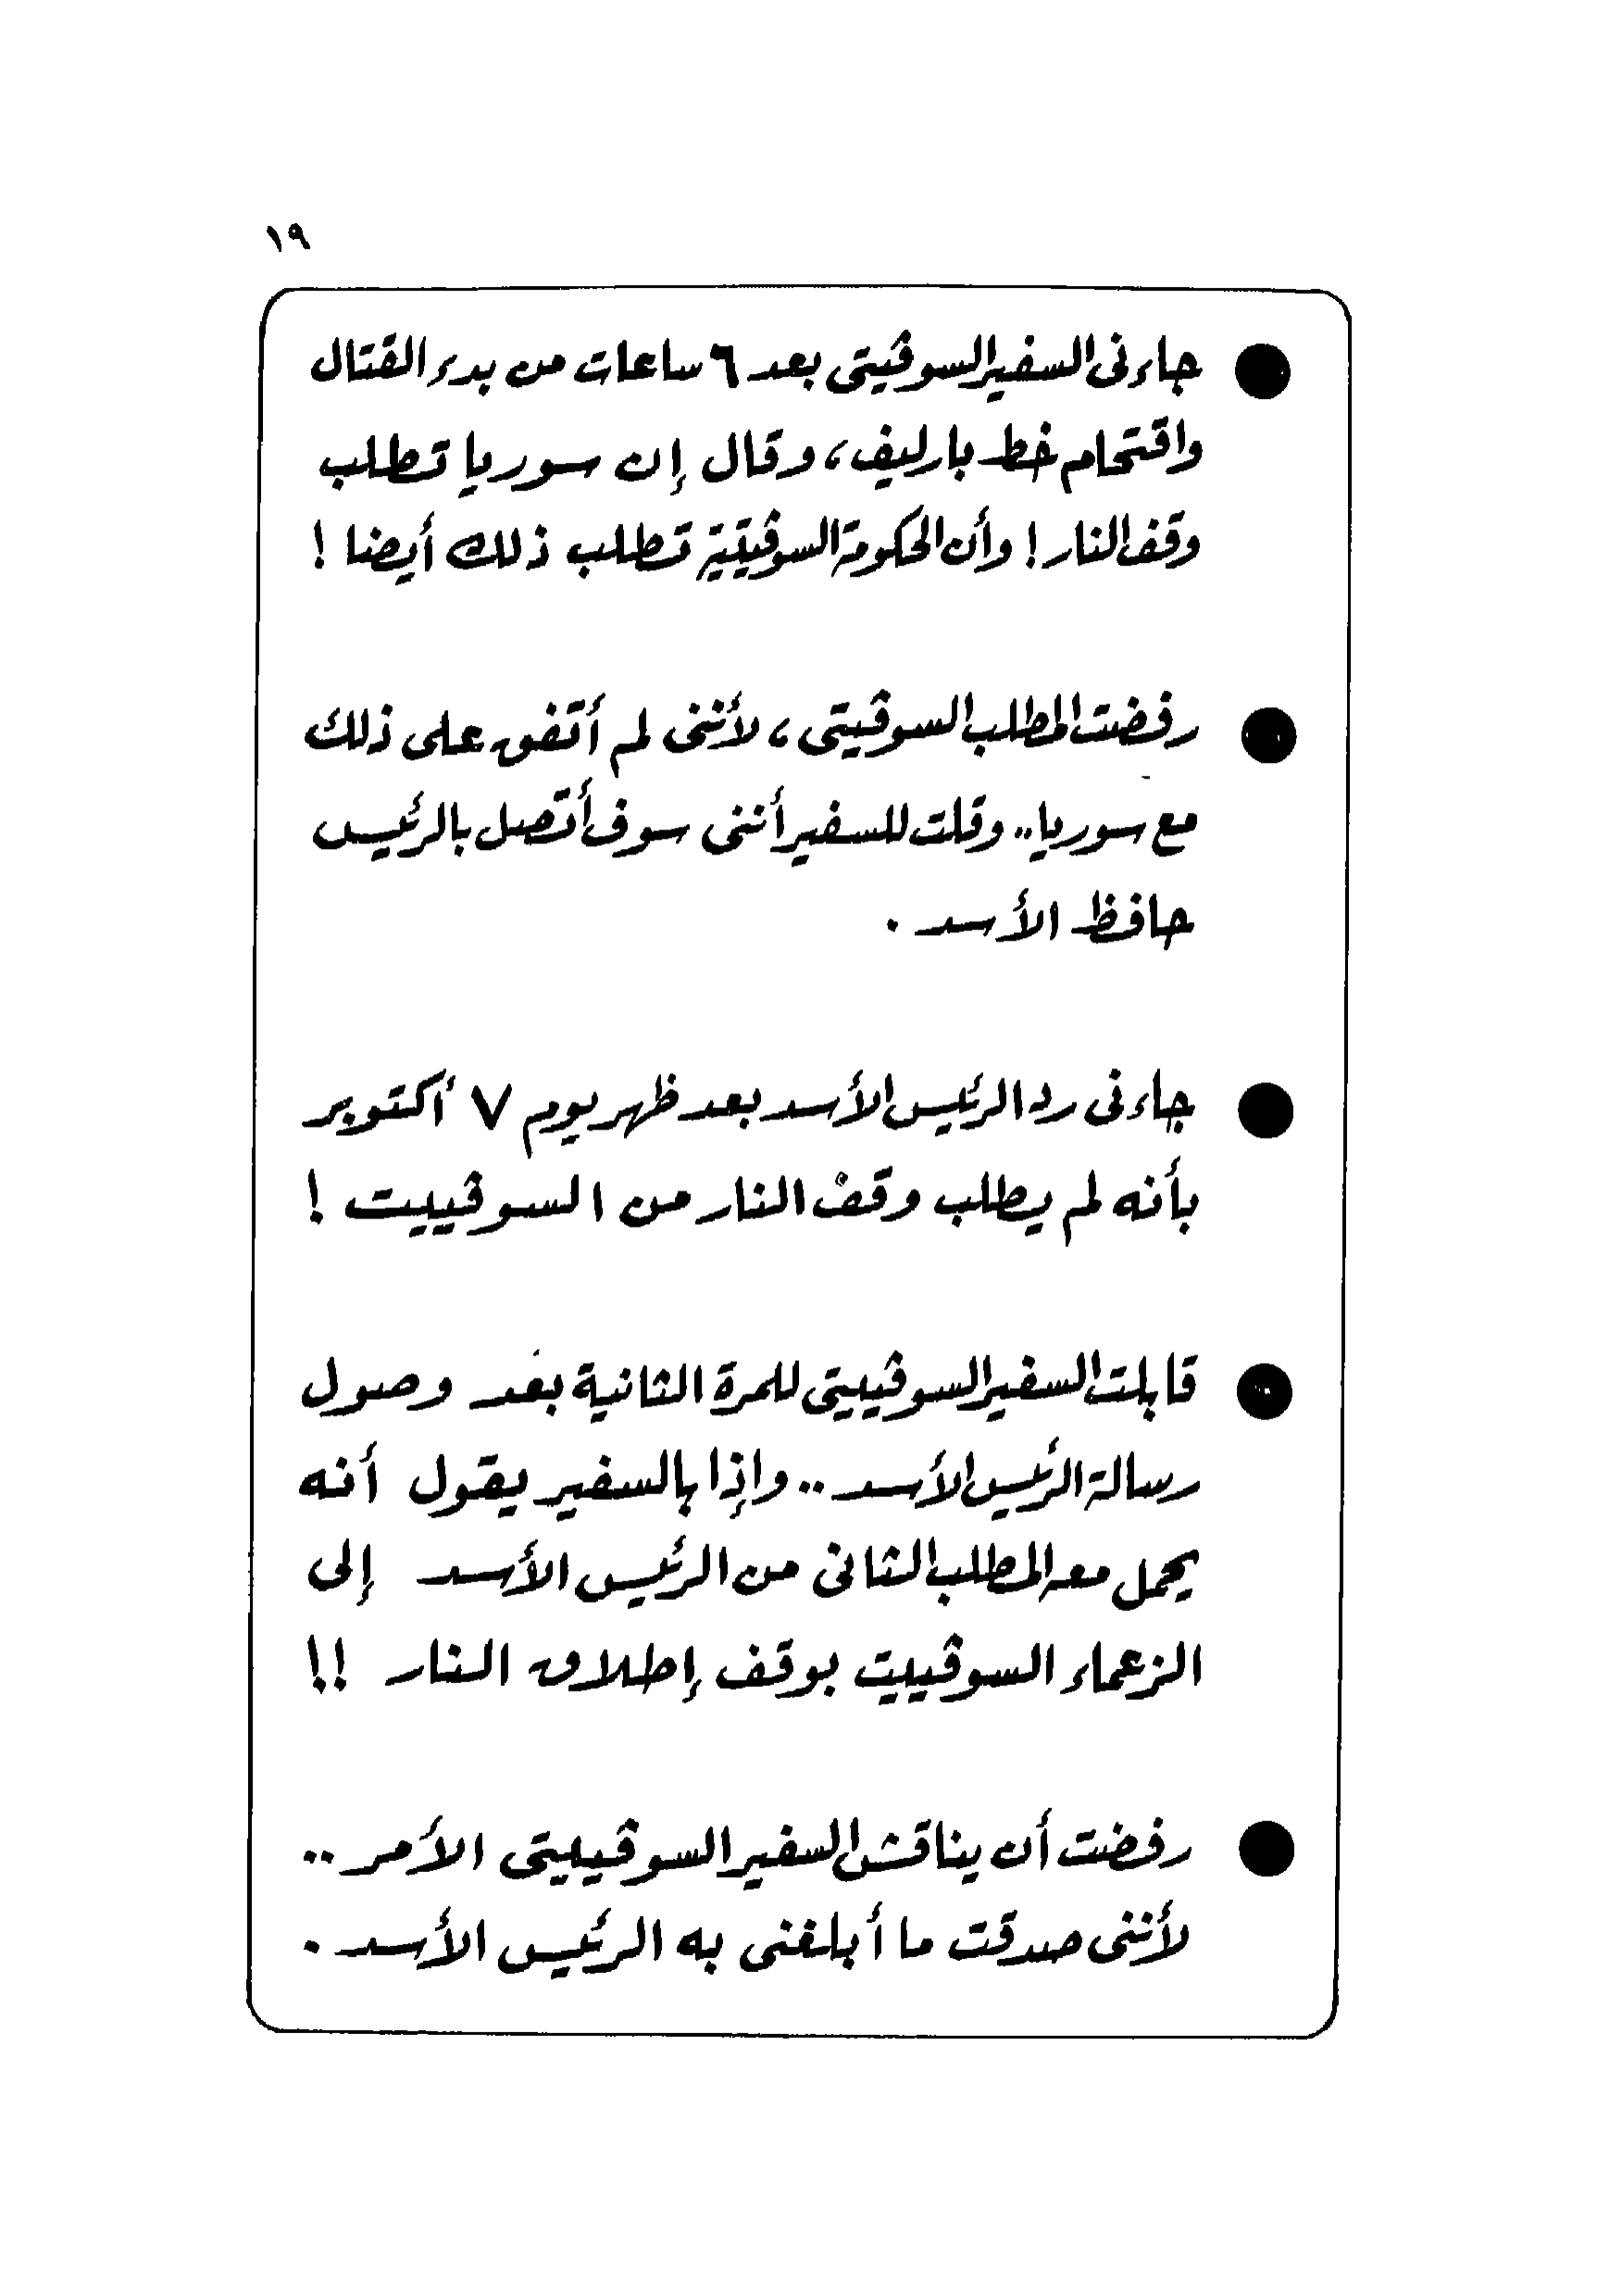 ١٩
● جاءنى السفير السوڤيتى بعد ٦ ساعات من بدء القتال
واقتحام خط بارليف، وقال إن سوريا تطلب
وقف النار! وأن الحكومة السوڤيتية تطلب ذلك أيضا !
● رفضت المطلب السوڤيتى، لأننى لم أتفق على ذلك
مع سوريا.. وقلت للسفير أننى سوف أتصل بالرئيس
حافظ الأسد .
● جاءنى رد الرئيس الأسد بعد ظهر يوم ٧ أكتوبر
بأنه لم يطلب وقف النار من السوڤييت !
● قابلت السفير السوڤييتى للمرة الثانية بعد وصول
رسالة الرئيس الأسد .. وإذا بالسفير يقول أنه
يحمل معه المطلب الثانى من الرئيس الأسد إلى
الزعماء السوڤييت بوقف إطلاق النار !!
● رفضت أن يناقش السفير السوڤييتى الأمر ..
لأننى صدقت ما أبلغنى به الرئيس الأسد .